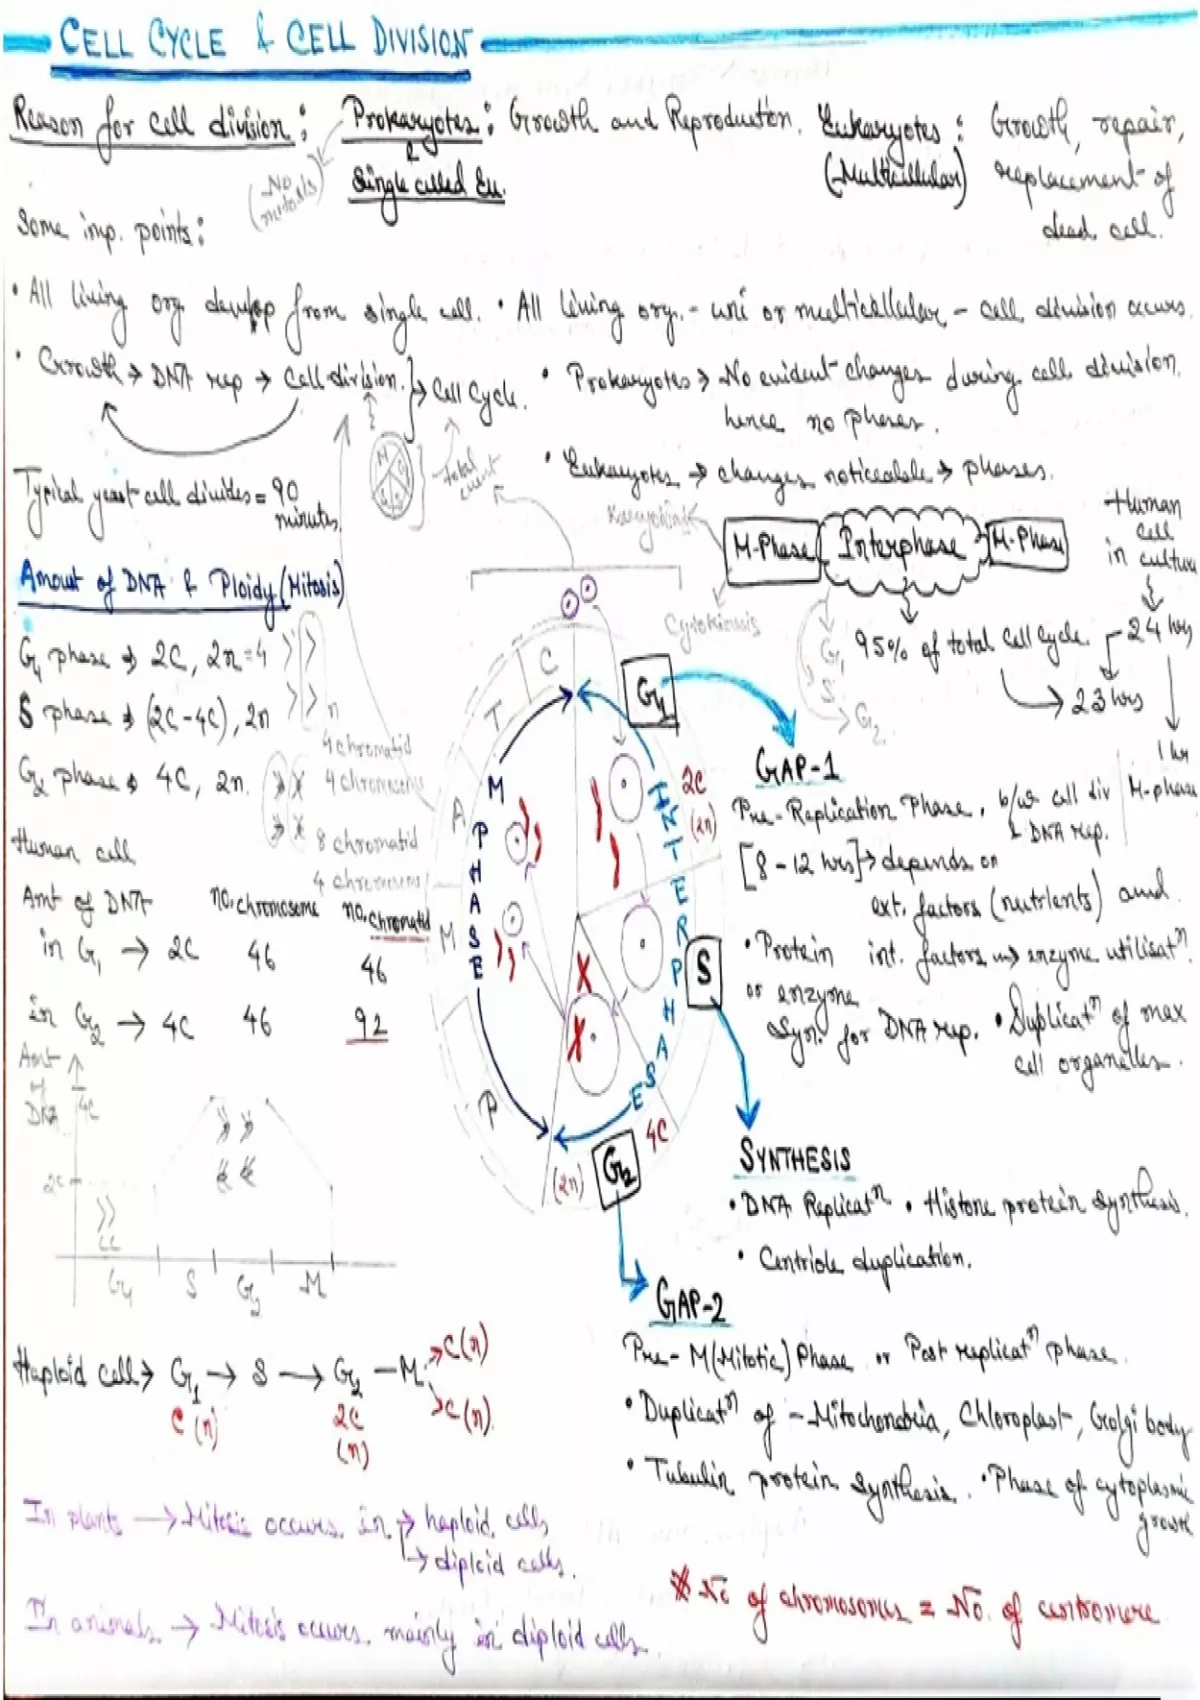 CELL CYCLE & CELL DIVISION
Reason for cell division : Prokaryotes : Growth and Reproduction. Eukaryotes : Growth, repair,
(No mitosis) & Single celled Eu. (Multicellular) replacement of
dead cell.
Some imp. points :
• All living org. develop from single cell. • All living org. - uni or multicellular - cell division occurs.
• Growth → DNA rep → Cell division. } → Cell Cycle. • Prokaryotes → No evident changes during cell division,
hence no phases.
• Eukaryotes → changes noticeable → phases.
Typical yeast cell divides = 90
minutes.
total
Karyokinesis
M-Phase Interphase M-Phase
Cytokinesis
G1
S
G2
95% of total Cell Cycle.
Human
cell
in culture
24 hrs
23 hrs
1 hr
M-phase
Amount of DNA & Ploidy (Mitosis)
G1 phase → 2C, 2n=4
S phase → (2C-4C), 2n
G2 phase → 4C, 2n.
4 chromatid
4 chromosome
8 chromatid
4 chromosome
Human cell
Amt of DNA no. chromosome no. chromatid
in G1 → 2C 46 46
in G2 → 4C 46 92
Amt
of
DNA
4C
2C
G1 S G2 M
C
T
A
M
P
M PHASE
INTERPHASE
G1
2C
(2n)
S
4C
G2
(2n)
GAP-1
Pre-Replication Phase, b/w cell div
& DNA rep.
[8-12 hrs] → depends on
ext. factors (nutrients) and
• Protein int. factors → enzyme utilisatⁿ
or enzyme
syn. for DNA rep. • Duplicatⁿ of max
cell organelles.
SYNTHESIS
• DNA Replicatⁿ • Histone protein synthesis.
• Centriole duplication.
GAP-2
Pre-M(Mitotic) Phase or Post replicatⁿ phase.
• Duplicatⁿ of - Mitochondria, Chloroplast, Golgi body
• Tubulin protein synthesis. • Phase of cytoplasmic
growth
Haploid cell → G1 → S → G2 - M → C(n)
→ C(n)
C (n)
2C
(n)
In plants → Mitosis occurs in → haploid cells
→ diploid cells.
In animals → Mitosis occurs mainly in diploid cells.
* No of chromosomes = No. of centromere